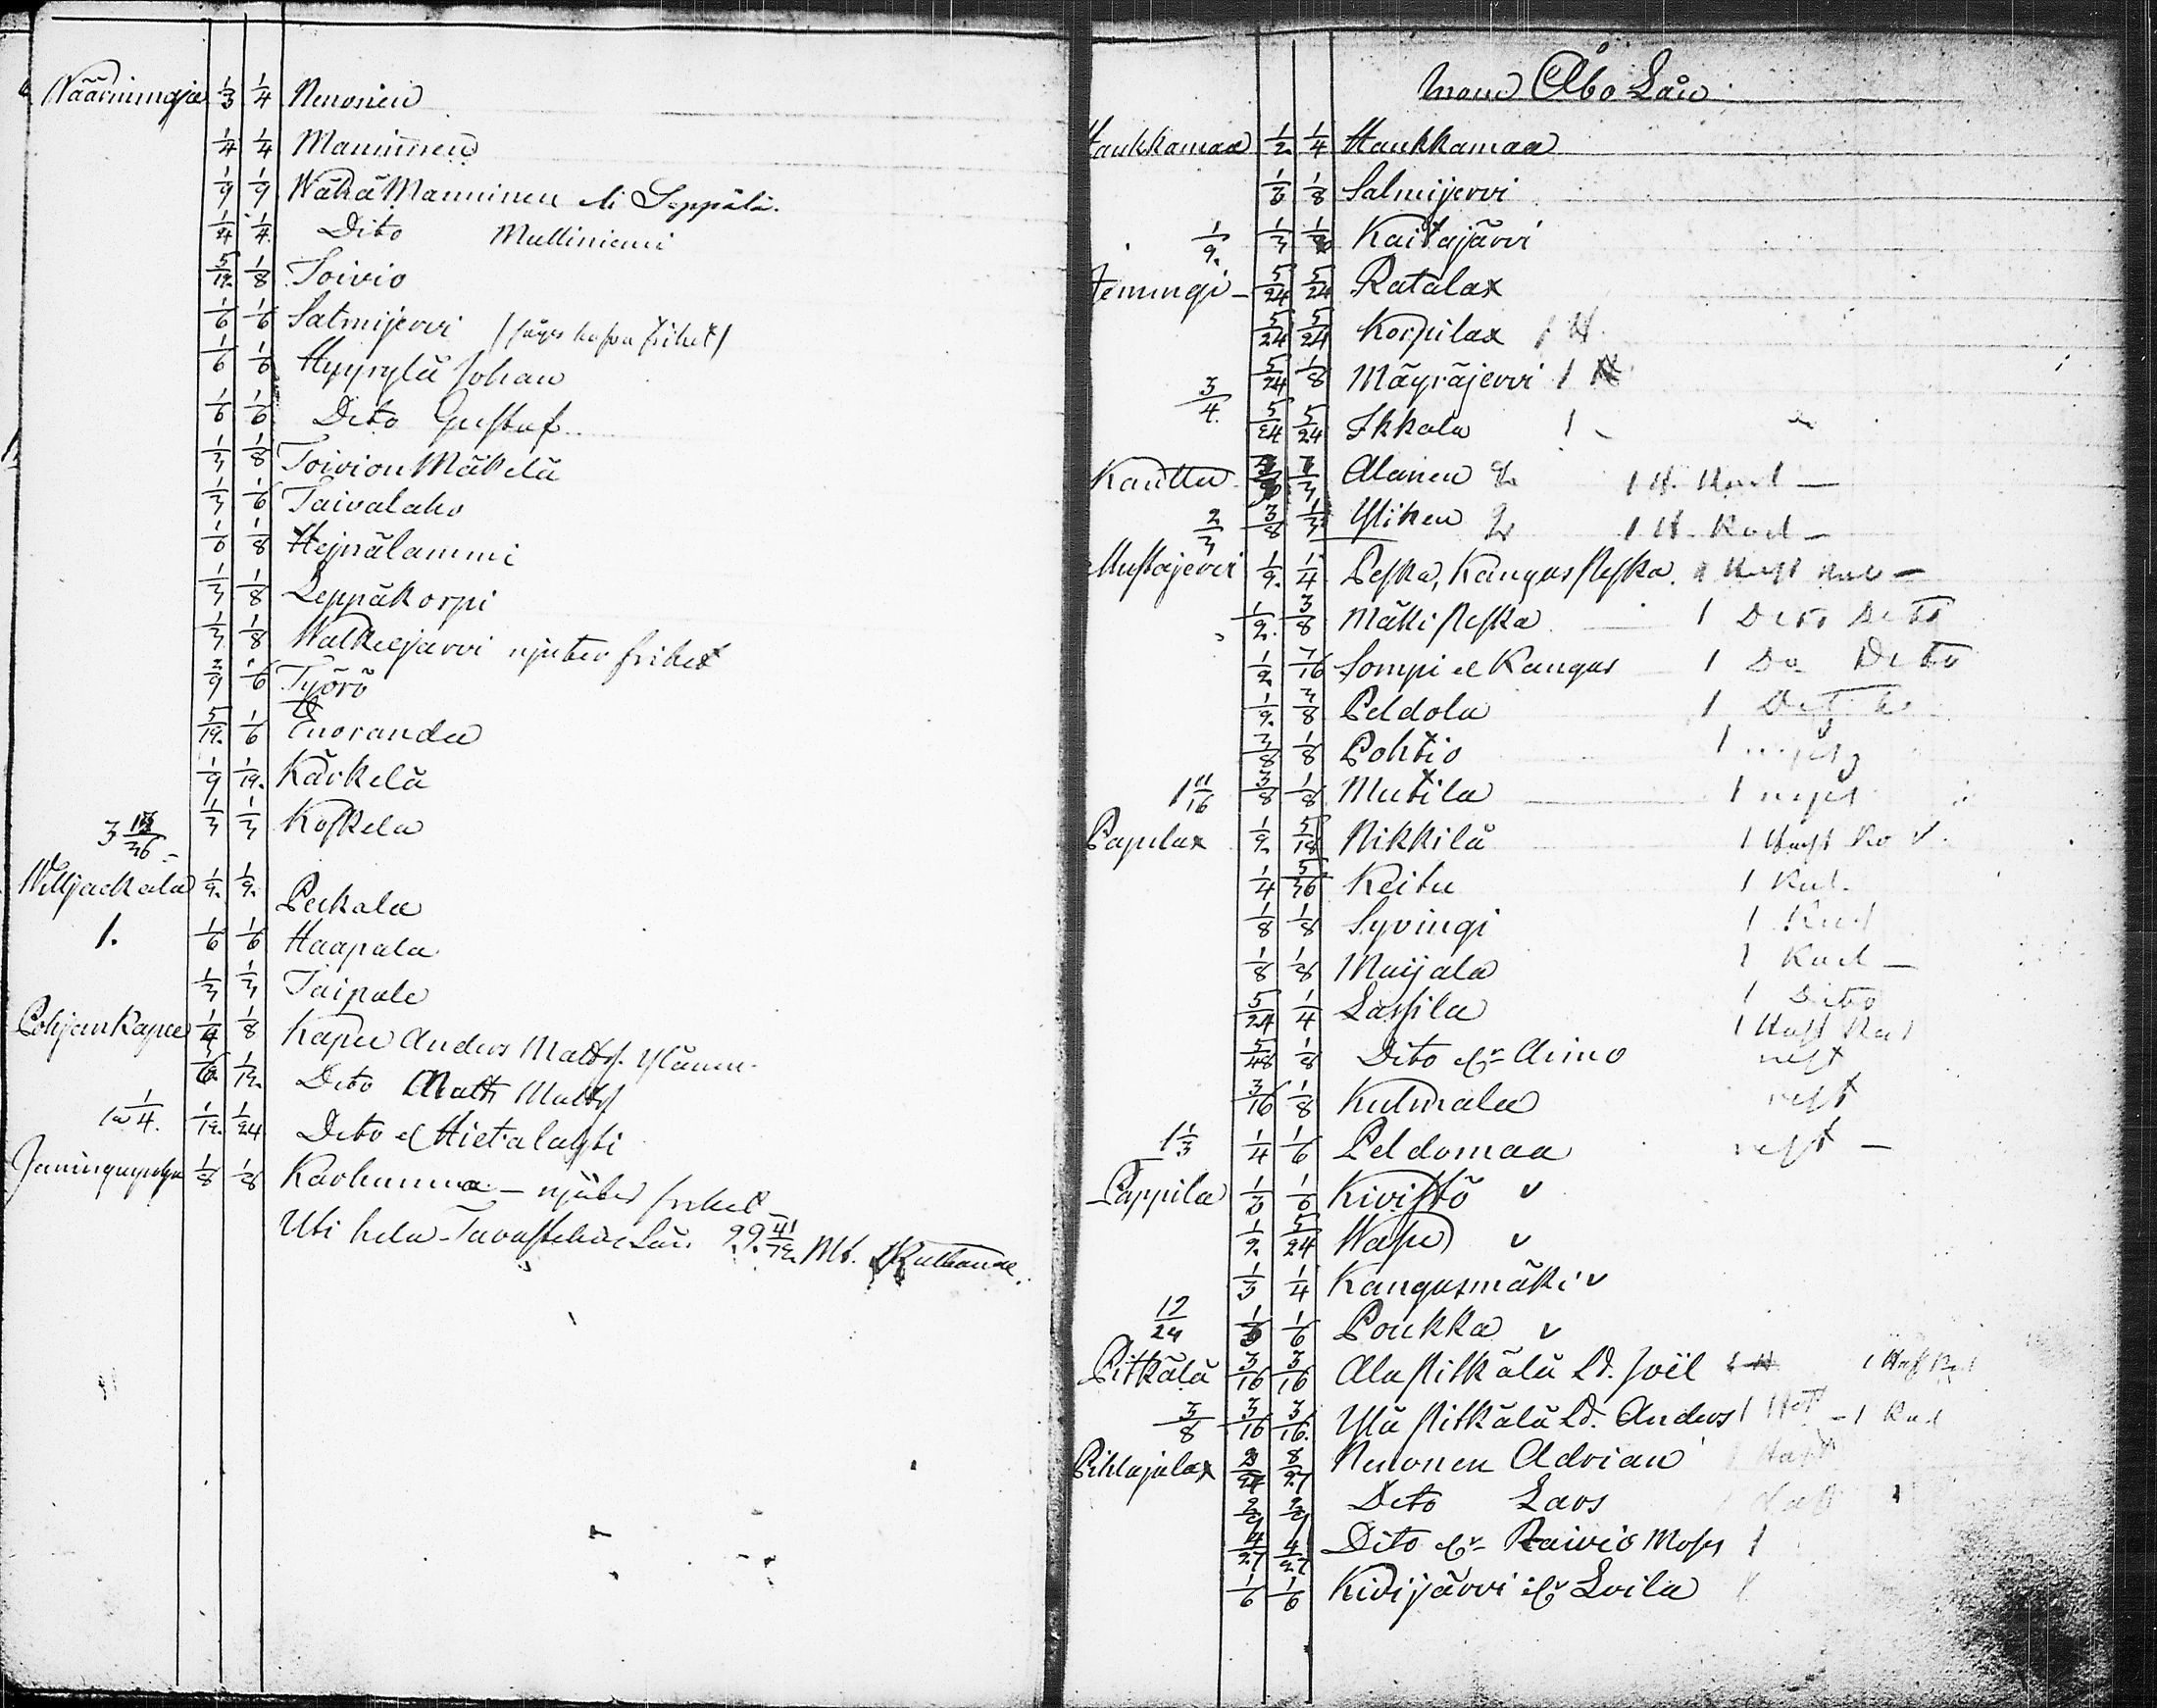 Näärninmaja 1/3 1/4 Nenonen
1/4 1/4 Manninen
1/9 1/9 Wähä Manninen eli Seppälä.
1/4 1/4 Dito Mulliniemi
5/12 1/8 Toivio
1/6 1/6 Salmijervi
1/6 1/6 Hyyrylä Johan
1/6 1/6 Dito Gustaf
1/3 1/8 Toivion Mäkelä
1/3 1/6 Taivalaho
1/6 1/8 Hejnälammi
1/3 1/8 Leppäkorpi
1/3 1/8 Walkeejarvi njuter frihet
2/9 1/6 Työrö
5/12 1/6 Enoranda
1/9 1/12 Kärkelä
1/3 1/3 Koskela
Willjackala 1/2 1/2 Peckala
1. 1/6 1/6 Haapala
1/3 1/3 Taipale
Pohjankapee 1/4 1/8 Kapee Anders Mattss. Ylänen
1/12 Dito Matts Mattss
1/4 1/12 1/24 Dito el Hietalahti
1/8 1/8 Karhunmaa – njuter frihet –
Uti hela Tavastehus Län 22 41/72 Mt.
Inom Åbo Län
Haukkamaa 1/2 1/4 Haukkamaa
1/6 1/8 Salmijervi
1/3 1/8 Kaitajärvi
Jemingi – 5/24 5/24 Ratalax
5/24 5/24 Korpilax 1 H.
3/4 5/24 1/8 Mäyräjervi 1
5/24 5/24 Ikkala 1
Kauttu 1/3 Alanen 1 H. Rad –
2/3 3/8 1/3 Ylinen 1 H. Rad –
Mustajervi 1/2 1/4 Peska, Kangas Peska
1/2 3/8 Mäki Peska 1 Dito Dito
1/2 7/16 Sompi el Kangas 1 Do Dito
1/2 3/8 Peldola 1
3/8 1/8 Pohtio 1
1 11/16 3/8 1/8 Mutila 1
Papilax 1/2 5/18 Nikkilä 1
1/4 5/36 Keitu 1 Rad.
1/8 1/8 Syvingi 1 Rad
1/8 1/8 Maijala 1 Rad –
5/24 1/4 Lassila 1 Dito
5/48 1/8 Dito el:r Aimo
3/16 1/8 Kulmala
1 1/3 1/4 1/6 Peldomaa
Pappila 1/3 1/6 Kivistö v
1/2 5/24 Wapu v
1/3 1/4 Kangasmäki v
1/6 1/6 Poukka v
Pitkälä 3/16 3/16 Ala Pitkälä Ld. Joël
3/8 3/16 3/16 Ylä Pitkälä Ld. Anders 1 – 1 Rad
Pihlajalax 8/27 Nenonen Adrian
2/9 2/9 Dito Lars
4/27 4/27 Dito el:r Raivio Moses 1
1/6 1/6 Kivijärvi el:r Loila